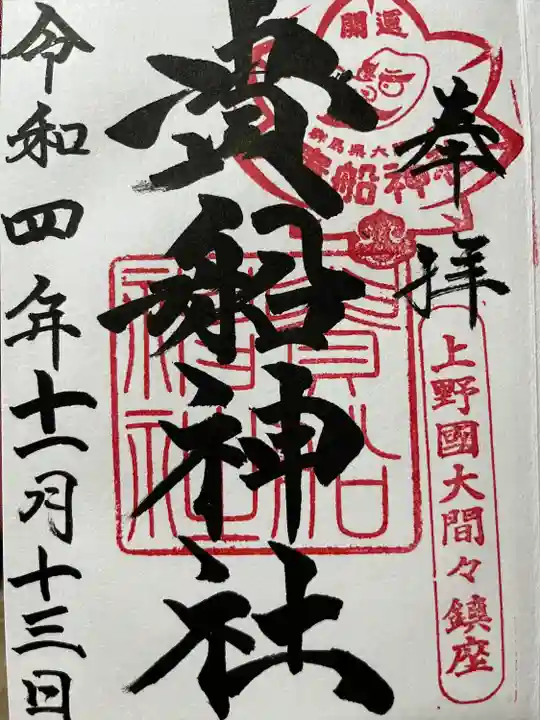 奉拝
開運
群馬県大
貴船神
上野國大間々鎮座
貴船神社
令和四年十一月十三日